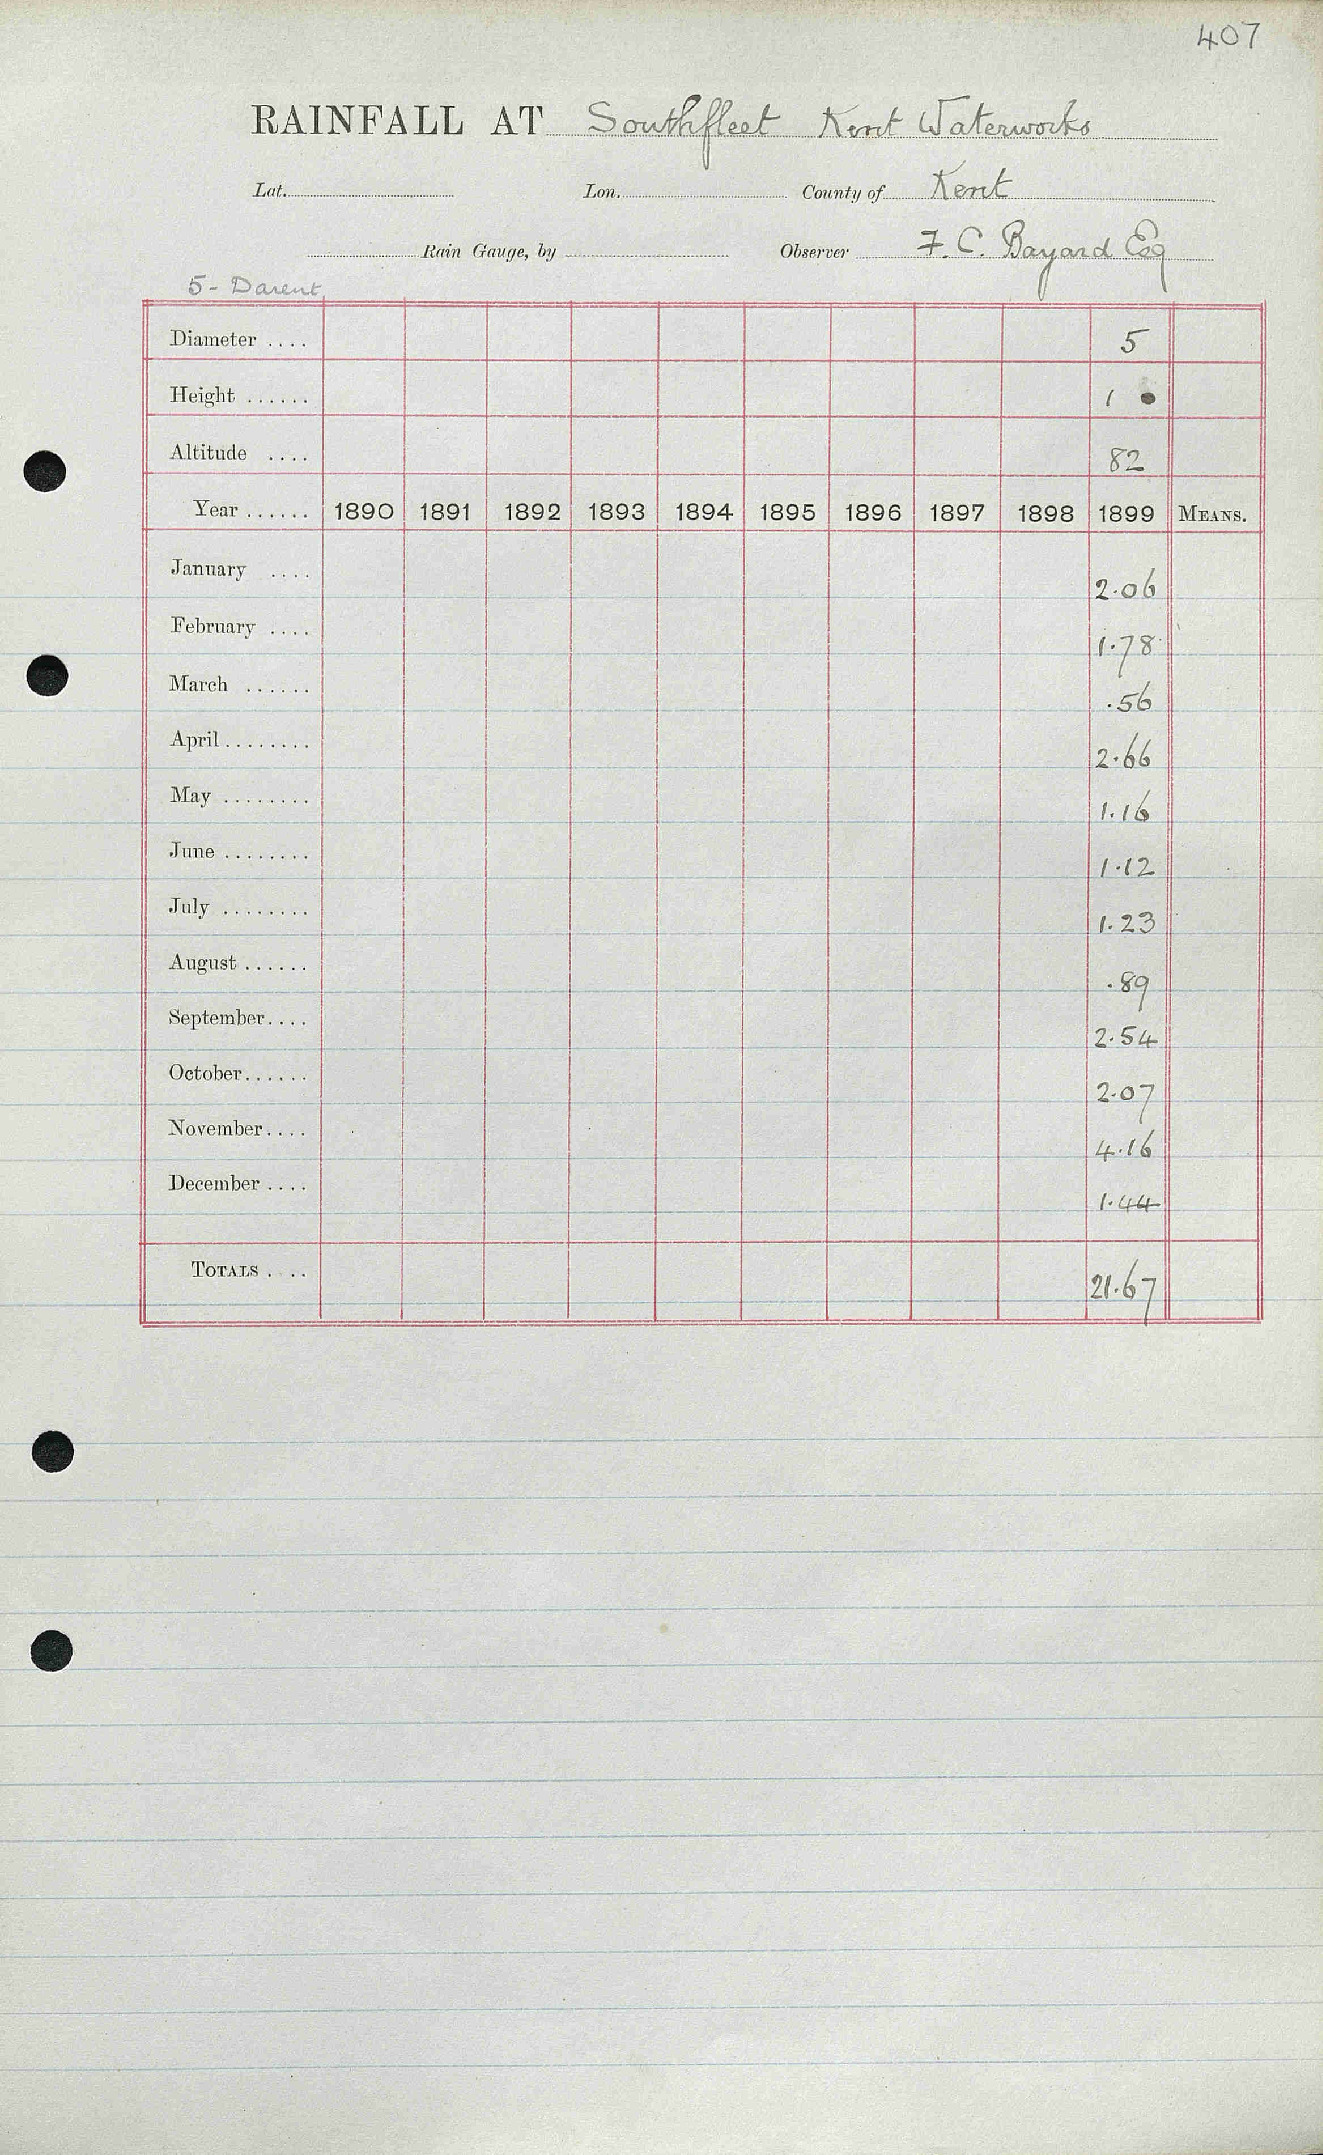 407
RAINFALL AT Southfleet Kent Waterworks
Lat. Lon. County of Kent
Rain Gauge, by Observer F. C. Bayard Esq
5 - Darent
Diameter .... 5
Height ...... 1
Altitude .... 82
Year ...... 1890 1891 1892 1893 1894 1895 1896 1897 1898 1899 MEANS.
January .... 2.06
February .... 1.78
March ...... .56
April ........ 2.66
May ........ 1.16
June ........ 1.12
July ........ 1.23
August ...... .89
September.... 2.54
October...... 2.07
November.... 4.16
December .... 1.44
TOTALS .... 21.67